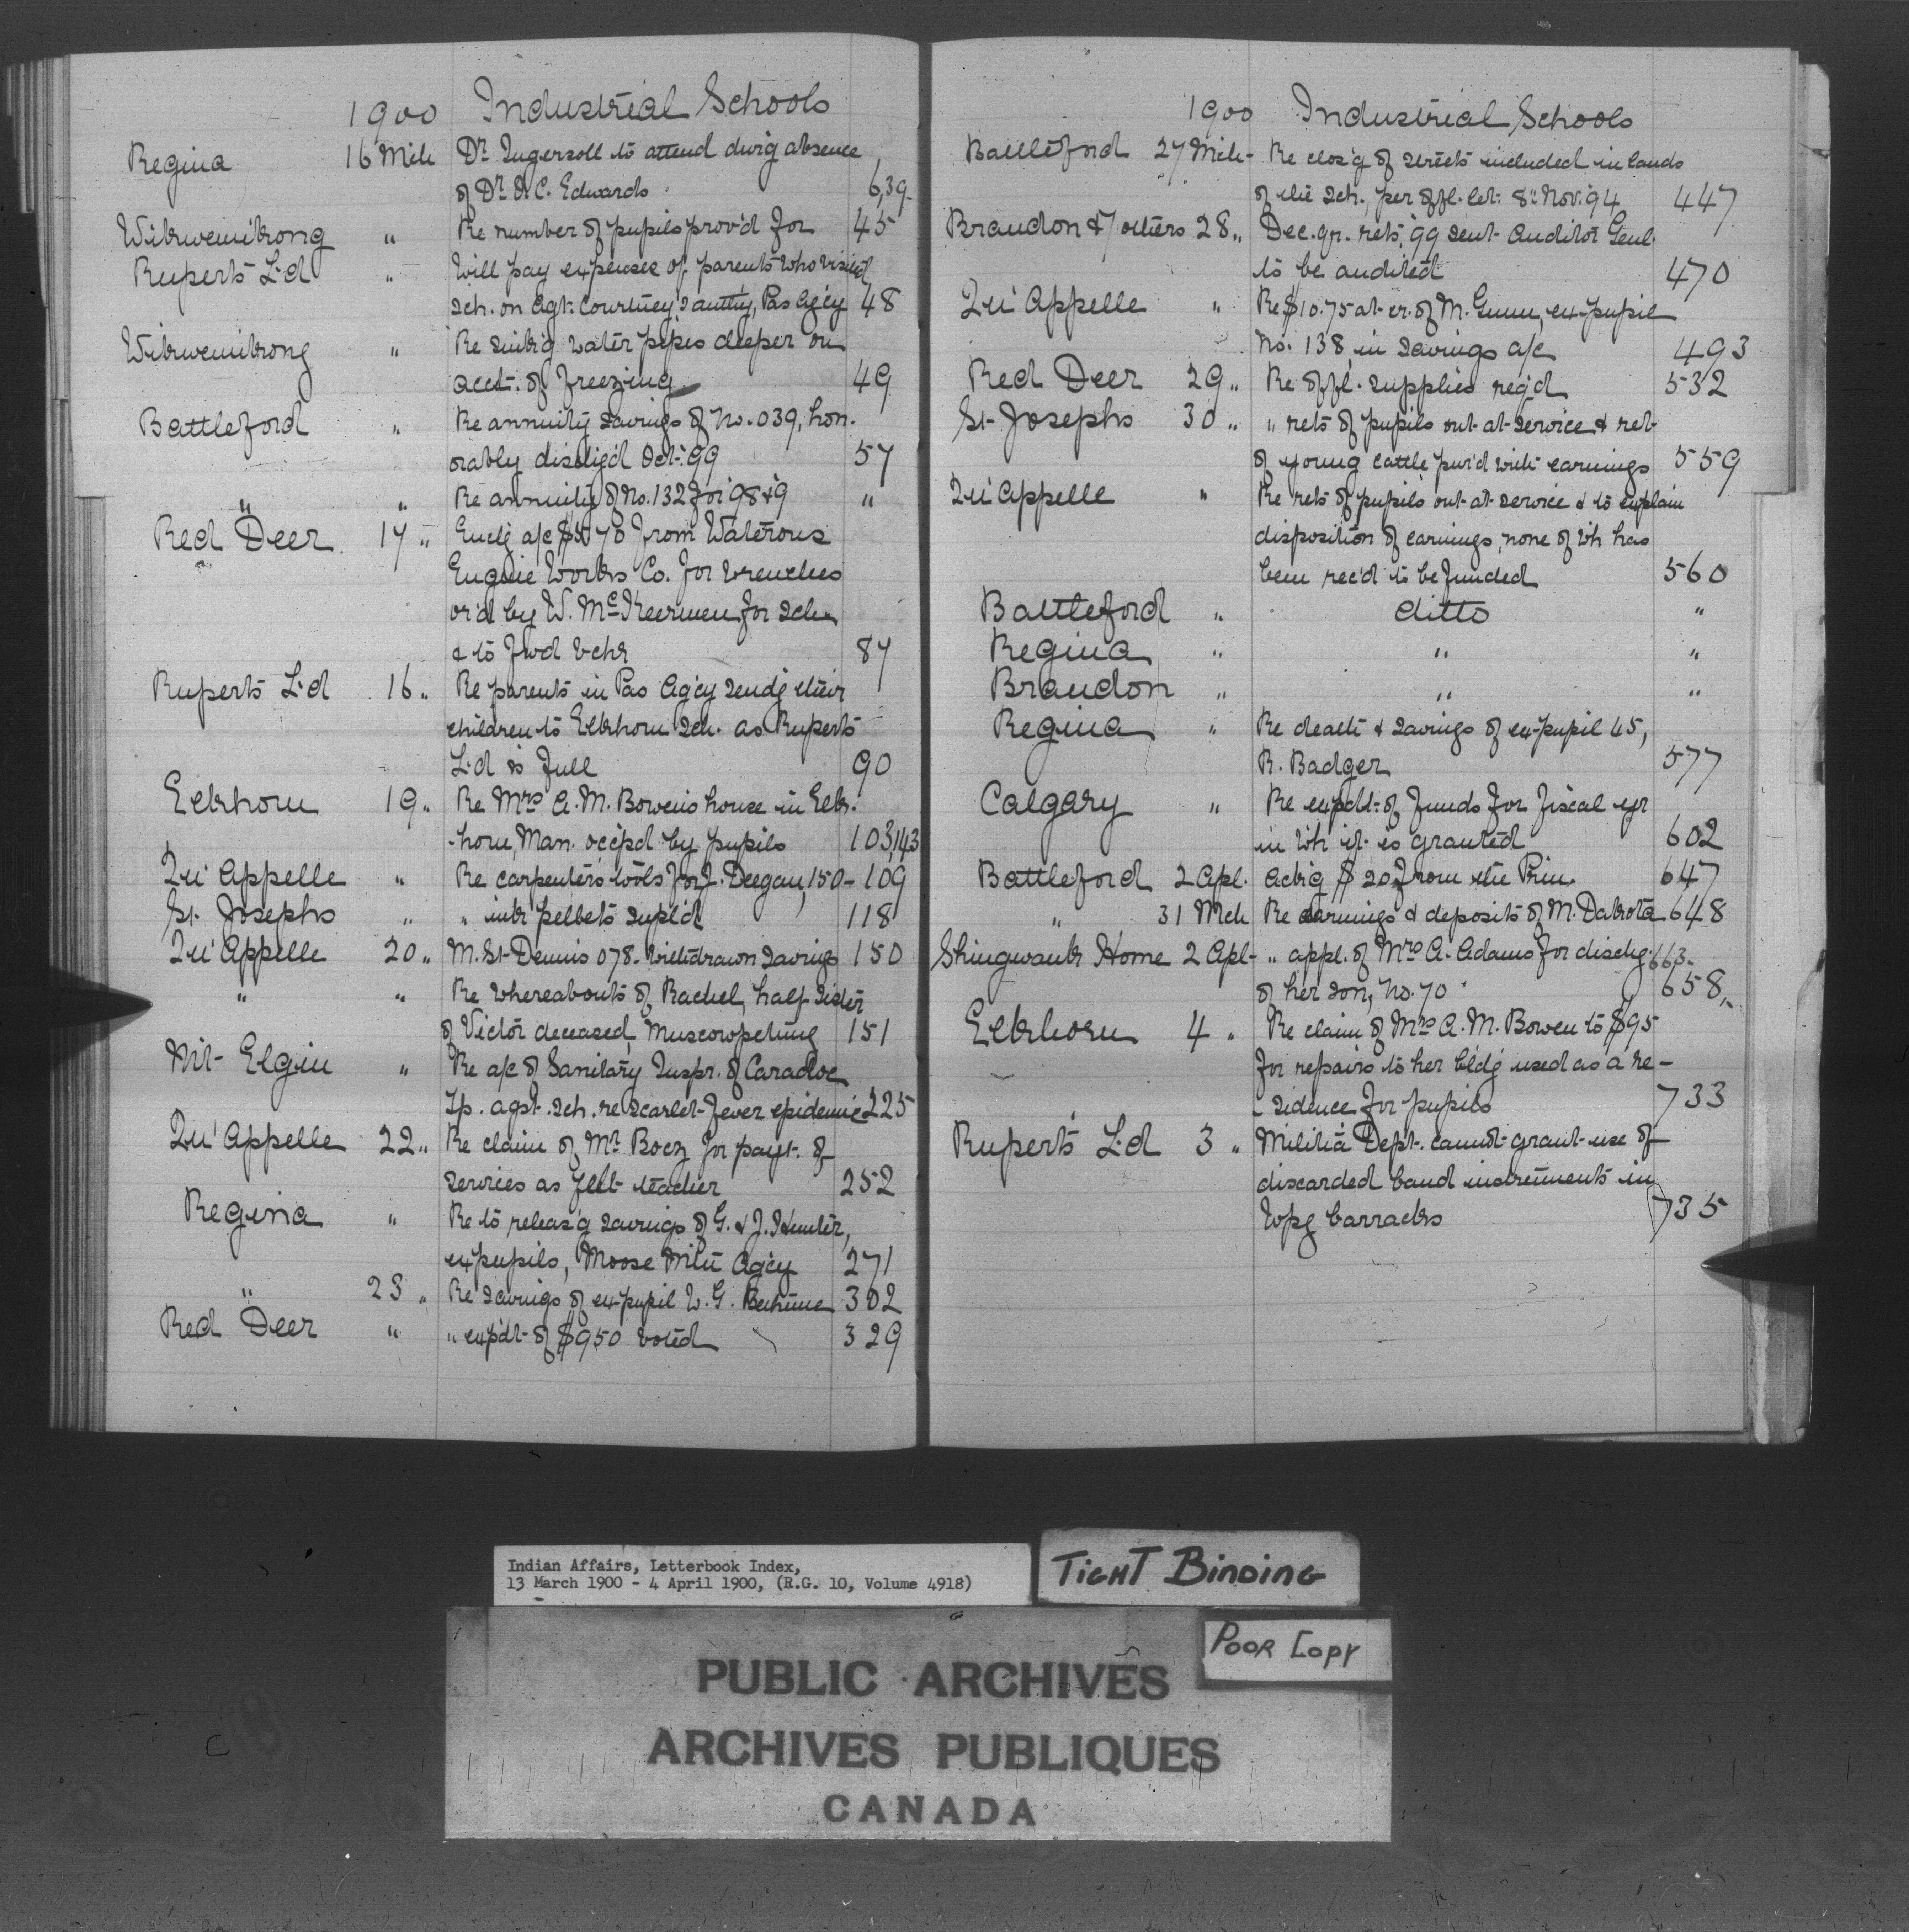 1900 Industrial Schools
Regina 16 Mch Dr Ingersoll to attend durig absence
of Dr O.C. Edwards 6,39
Wikwemikong " Re number of pupils prov'd for 45
Ruperts L'd " Will pay expenses of parents who visited
Sch. on Agt. Courtney's authy, Pas Ag'cy 48
Wikwemikong " Re sink'g water pipes deeper on
acct. of freezing 49
Battleford " Re annuity savings of No. 039, hon-
orably disch'g'd Oct. '99 57
" " Re annuity of No. 132 for '98 & 9 "
Red Deer 17 " Encl'g a/c from Waterous
Engine Works Co. for wrenches
or'd by W. for Sch.
& to fwd vchr 87
Ruperts L'd 16 " Re parents in Pas Ag'cy send'g their
children to Elkhorn Sch. as Ruperts
L'd is full 90
Elkhorn 19 " Re Mrs A.M. Bowen's house in Elk-
-horn, Man. occ'pd by pupils 103,143
Qu'Appelle " Re carpenter's tools for J. Deegan, 150- 109
St. Josephs " " ink pellets suppl'd 118
Qu'Appelle 20 " M. St. Dennis 078- withdrawn savings 150
" " Re whereabouts of Rachel, half-sister
of Victor deceased, Muscowpetung 151
Mt. Elgin " Re a/c of Sanitary Inspr. of Caradoc
Tp. agst. Sch. re scarlet-fever epidemic 225
Qu'Appelle 22 " Re claim of Mr Boez for payt. of
services as teacher 252
Regina " Re to releas'g savings of G. & J. Hunter,
ex pupils, Moose Mtn Ag'cy 271
" 23 " Re savings of ex-pupil W.G. Bethune 302
Red Deer " " exp'dt. of $950 voted 329
1900 Industrial Schools
Battleford 27 Mch- Re clos'g of streets included in lands
of the Sch., per offl. let. 8th Nov. '94 447
Brandon & 7 others 28 " Dec. qr. rets, '99 sent Auditor Genl.
to be audited 470
Qu'Appelle " Re $10.75 at cr. of M. Gunn, ex-pupil
No. 138, in savings a/c 493
Red Deer 29 " Re offl. supplies req'd 532
St. Josephs 30 " " rets of pupils out-at-service & ret-
of young cattle pur'd with earnings 559
Qu'Appelle " Re rets of pupils out-at-service & to explain
disposition of earnings, none of wh has
been rec'd to be funded 560
Battleford " ditto "
Regina " " "
Brandon " " "
Regina " Re death & savings of ex-pupil 45,
R. Badger 577
Calgary " Re expdt. of funds for fiscal yr
in wh it is granted 602
Battleford 2 Apl. Ack'g $20 from the Prin. 647
" 31 Mch Re earnings & deposits of M. Dakota 648
Shingwauk Home 2 Apl- " appl. of Mrs A. Adams for dischg. 663-
of her son, No. 70 658 "
Elkhorn 4 " Re claim of Mrs A.M. Bowen to $95
for repairs to her bl'd'g used as a re-
- sidence for pupils 733
Ruperts L'd 3 " Militia Dept. cannot grant use of
discarded band instruments in
Wpg barracks 735
Indian Affairs, Letterbook Index,
13 March 1900 - 4 April 1900, (R.G. 10, Volume 4918)
TIGHT BINDING
POOR COPY
PUBLIC ARCHIVES
ARCHIVES PUBLIQUES
CANADA